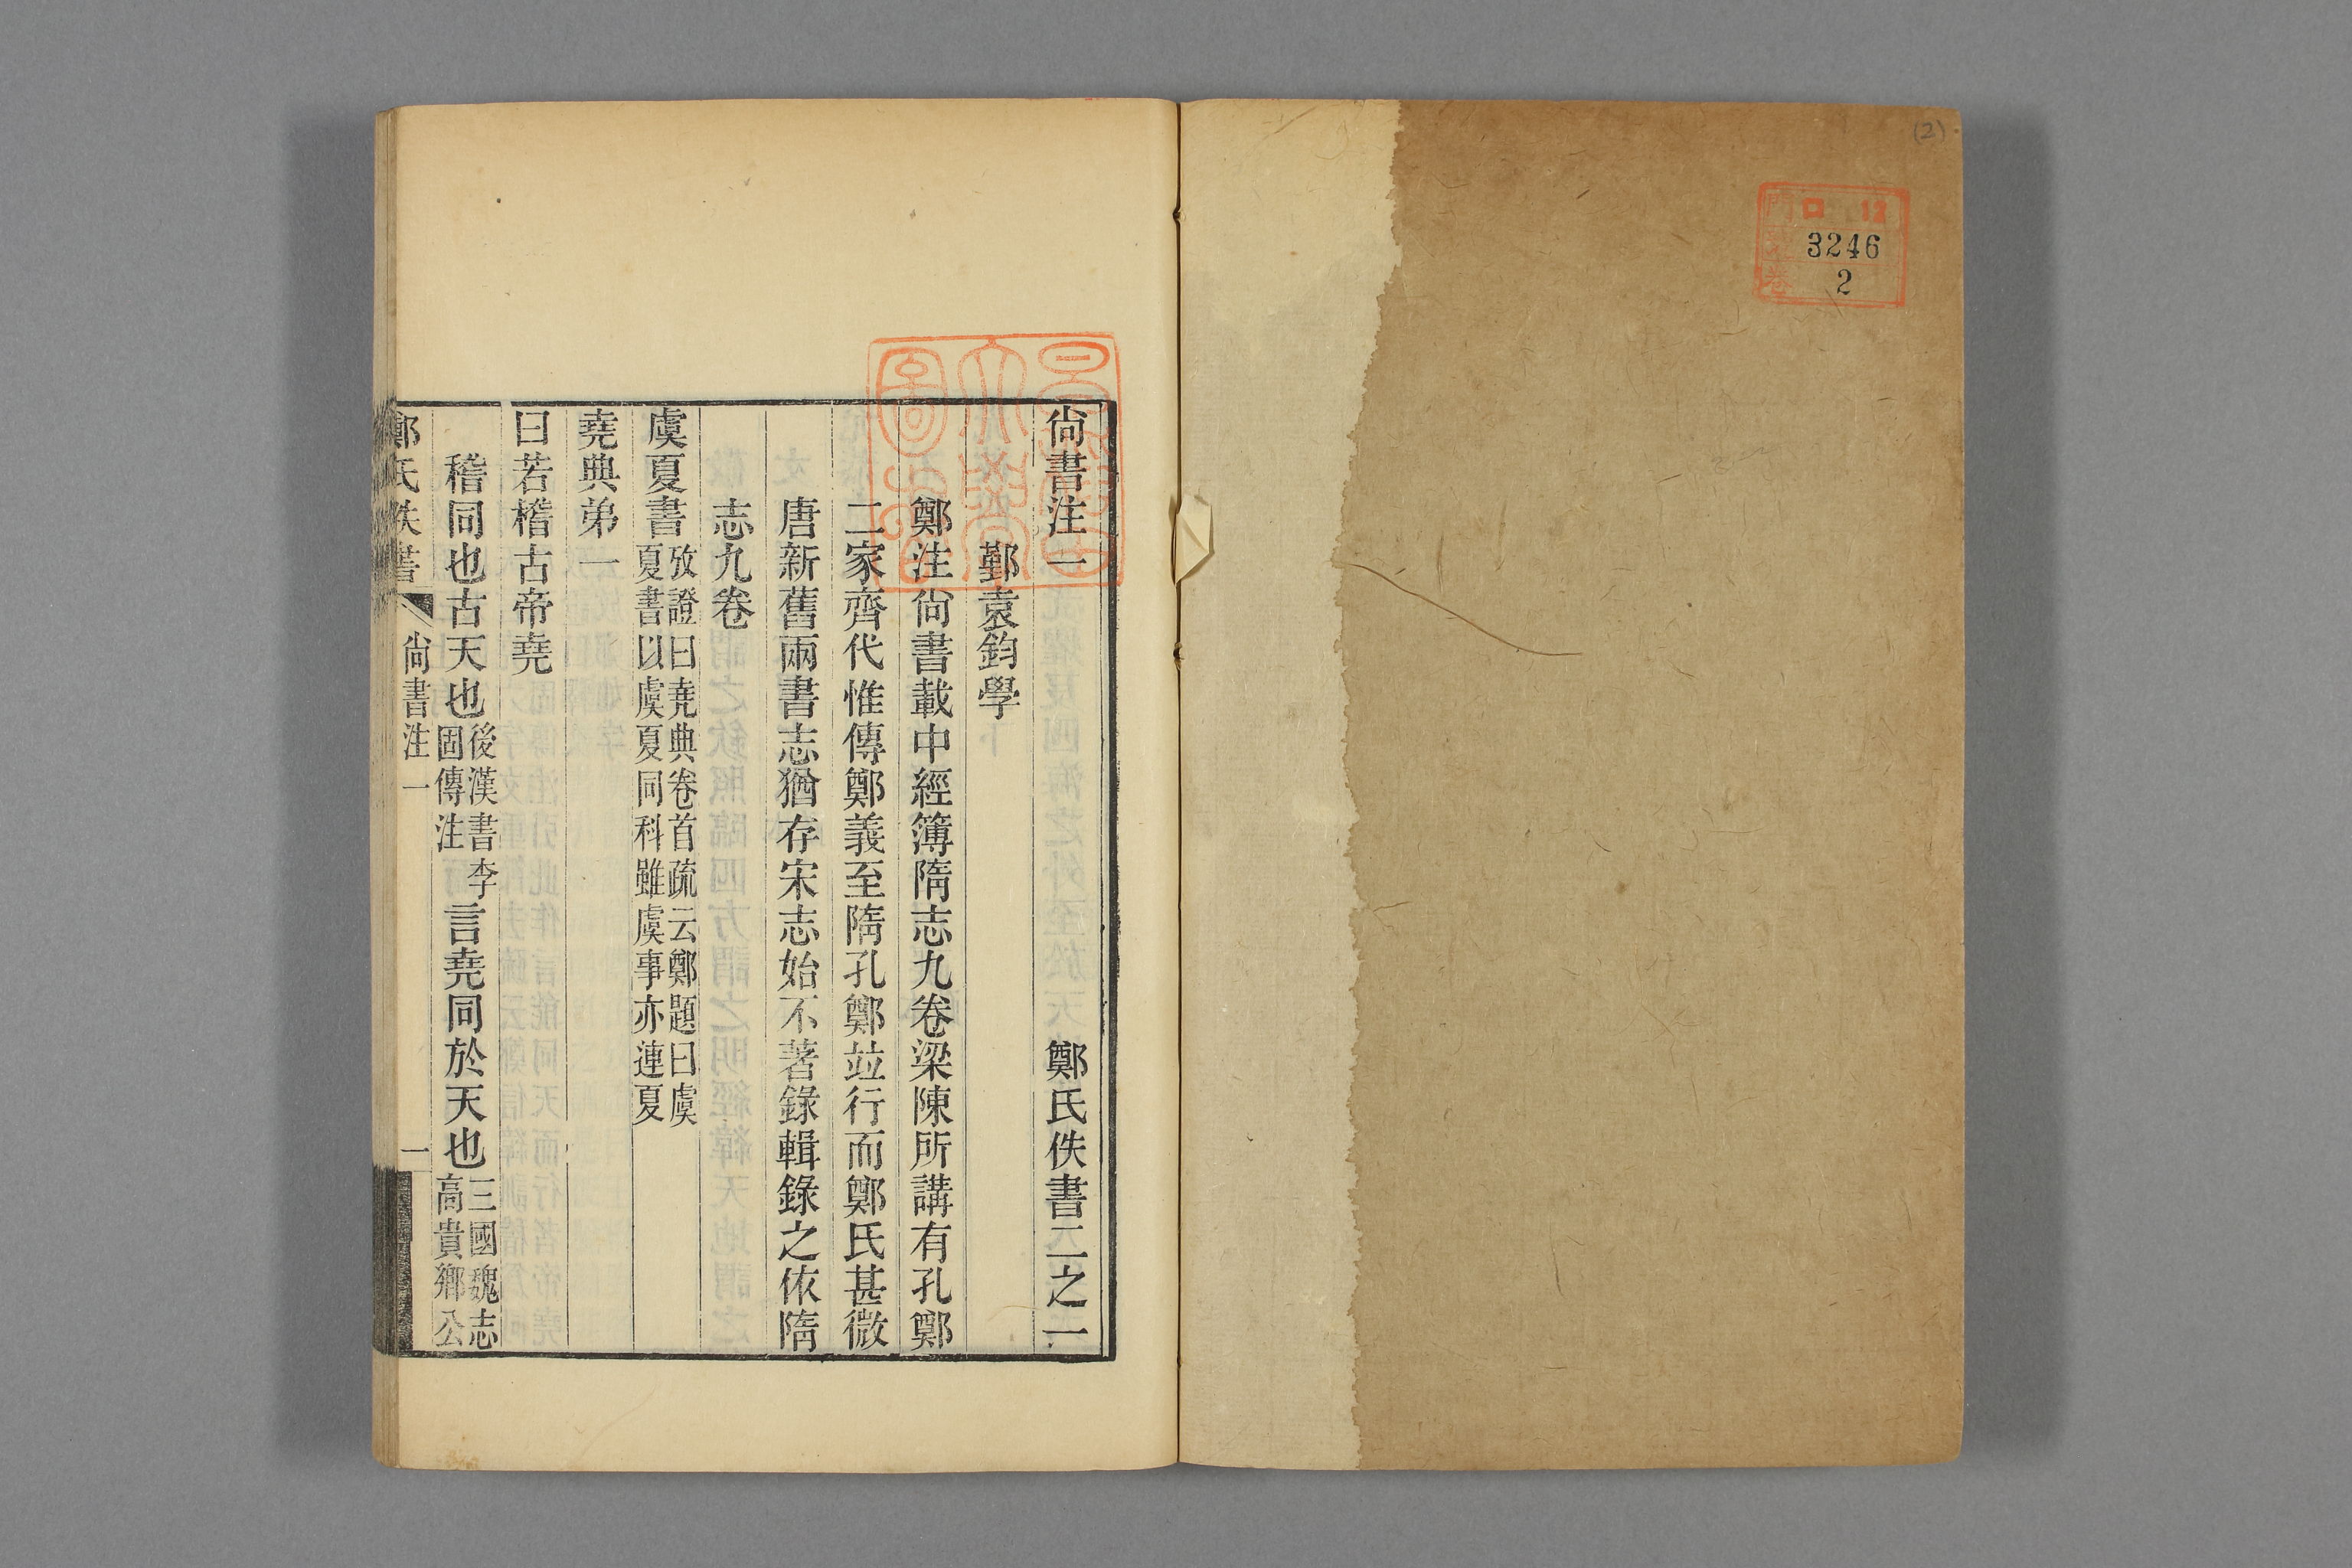 (2)
門 口 12
號 3246
卷 2
尙書注一 鄭氏佚書二之一
鄞袁鈞學
鄭注尙書載中經簿隋志九卷梁陳所講有孔鄭
二家齊代惟傳鄭義至隋孔鄭竝行而鄭氏甚微
唐新舊兩書志猶存宋志始不著錄輯錄之依隋
志九卷
虞夏書攷證曰堯典卷首疏云鄭題曰虞
夏書以虞夏同科雖虞事亦連夏
堯典弟一
曰若稽古帝堯
稽同也古天也後漢書李
固傳注言堯同於天也三國魏志
高貴鄉公
鄭氏佚書 尙書注一 一